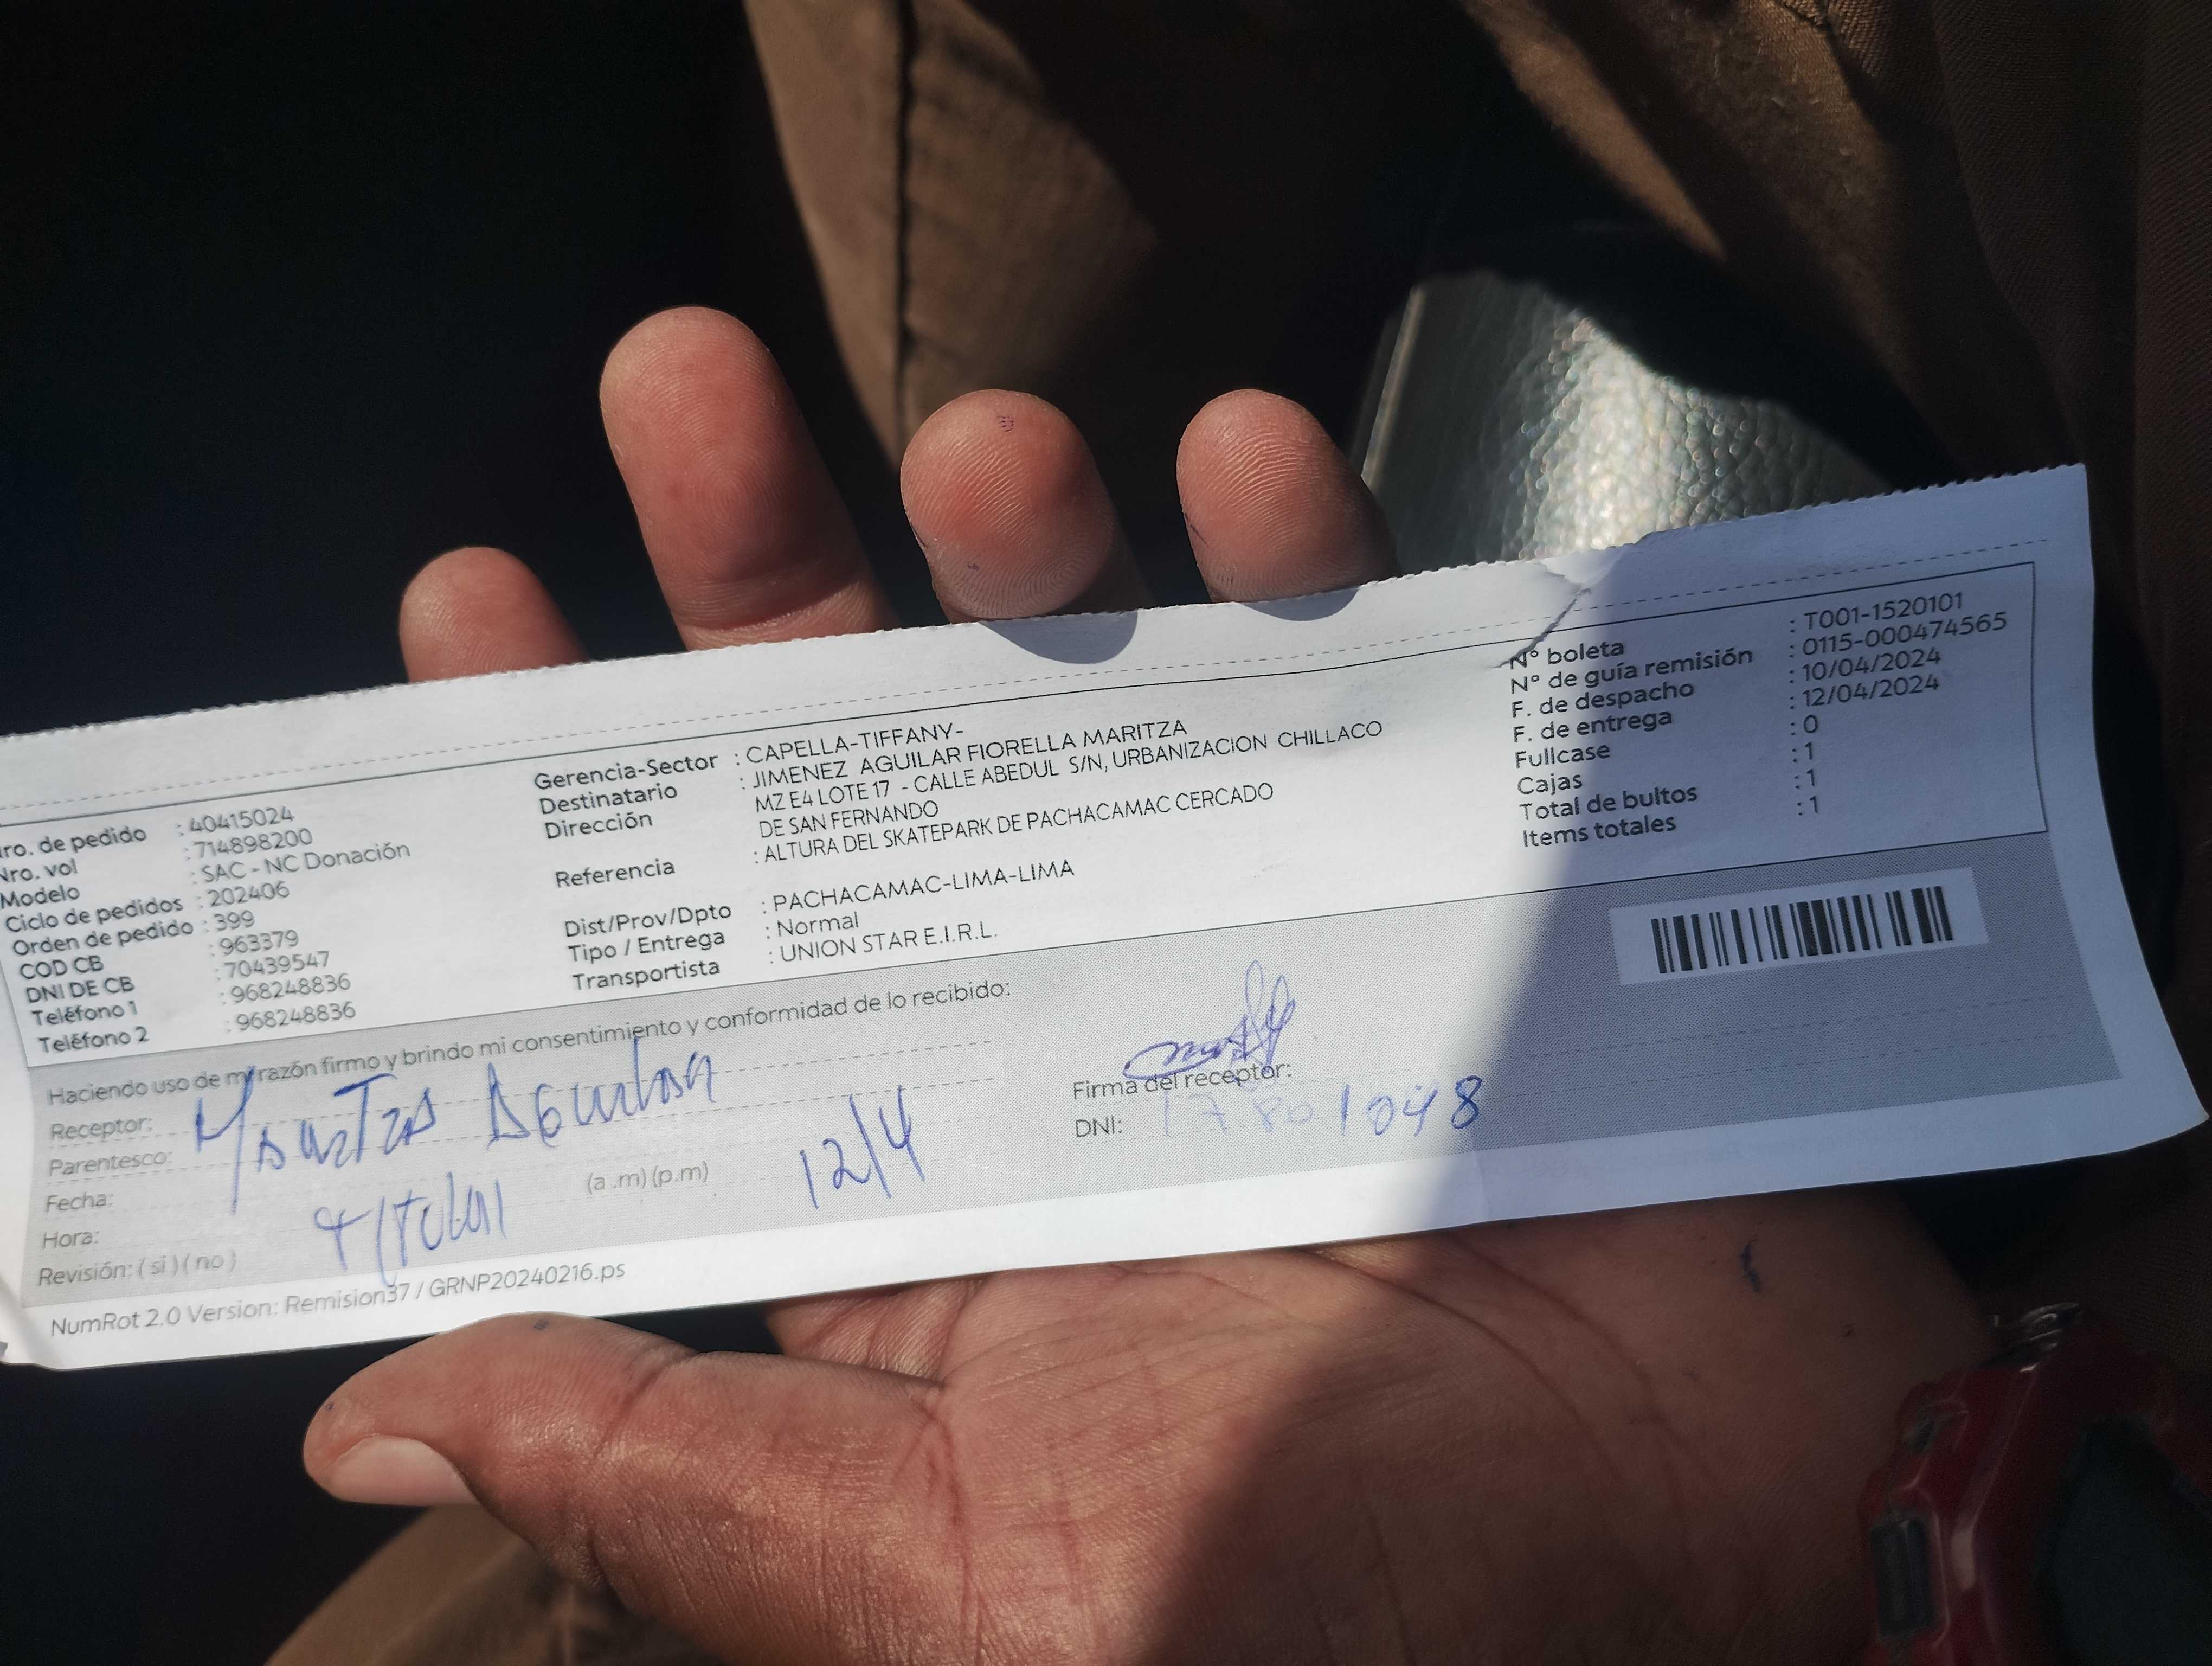 Nro. de pedido : 40415024
Nro. vol : 714898200
Modelo : SAC - NC Donación
Ciclo de pedidos : 202406
Orden de pedido : 399
COD CB : 963379
DNI DE CB : 70439547
Teléfono 1 : 968248836
Teléfono 2 : 968248836
Gerencia-Sector : CAPELLA-TIFFANY-
Destinatario : JIMENEZ AGUILAR FIORELLA MARITZA
Dirección MZ E4 LOTE 17 - CALLE ABEDUL S/N, URBANIZACION CHILLACO
DE SAN FERNANDO
Referencia : ALTURA DEL SKATEPARK DE PACHACAMAC CERCADO
Dist/Prov/Dpto : PACHACAMAC-LIMA-LIMA
Tipo / Entrega : Normal
Transportista : UNION STAR E.I.R.L.
N° boleta : T001-1520101
N° de guía remisión : 0115-000474565
F. de despacho : 10/04/2024
F. de entrega : 12/04/2024
Fullcase : 0
Cajas : 1
Total de bultos : 1
Items totales : 1
Haciendo uso de mi razón firmo y brindo mi consentimiento y conformidad de lo recibido:
Receptor:
Parentesco:
Fecha: 12/4
Hora: (a.m) (p.m)
Revisión: ( si ) ( no )
Firma del receptor:
DNI: 17801048
NumRot 2.0 Version: Remision37 / GRNP20240216.ps